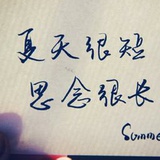 夏天很短
思念很长
Summe